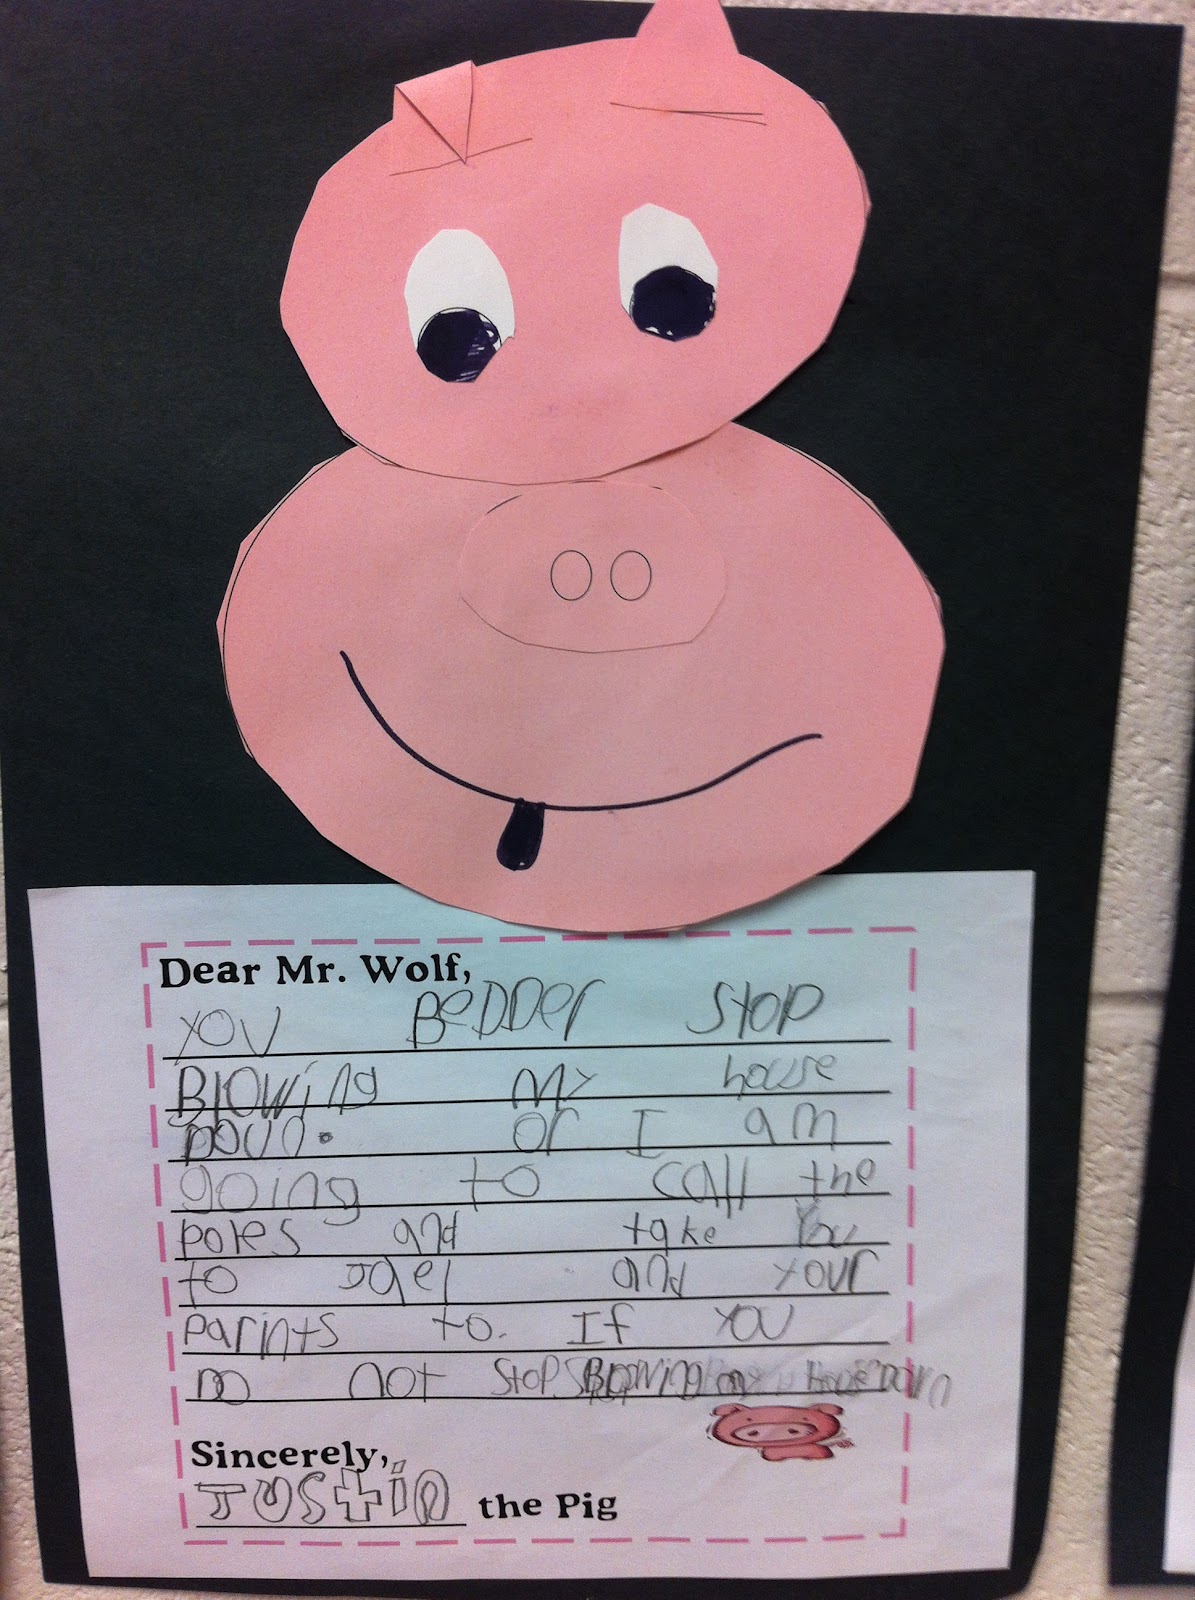 Dear Mr. Wolf,
You BeDDer Stop
Blowing my house
Doun. or I am
going to call the
poles and take You
to Jael and your
parints to. If you
Do not Stop Blowing my House Down
Sincerely,
Justin the Pig